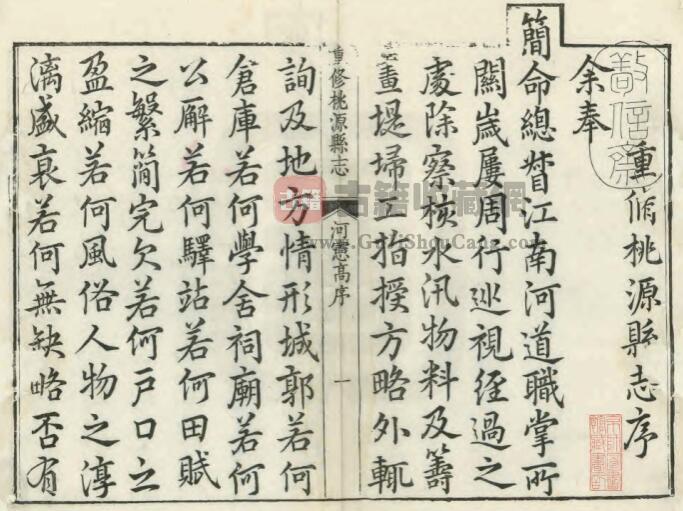 重修桃源縣志序
余奉
簡命總督江南河道職掌所
關歲屢周行巡視經過之
處除察核水汛物料及籌
畫堤埽工指授方略外輒
重修桃源縣志
河憲高序
一
詢及地方情形城郭若何
倉庫若何學舍祠廟若何
公解若何驛站若何田賦
之繁簡完欠若何戶口之
盈縮若何風俗人物之淳
漓盛衰若何無缺略否有
古籍